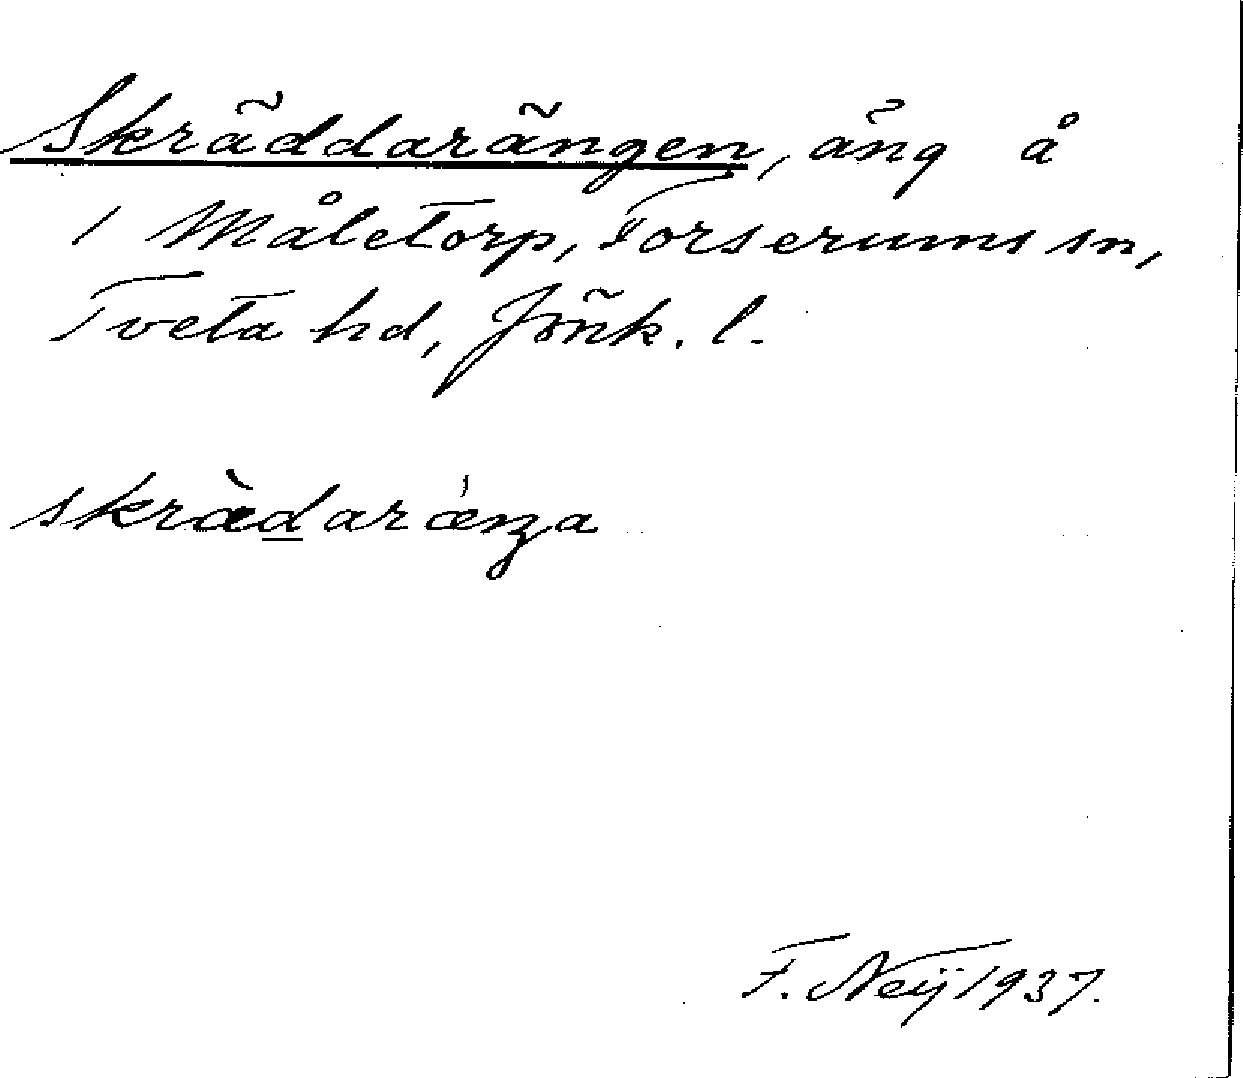 Skräddarängen, äng å
1 Måletorp, Forserums sn,
Tveta hd, Jönk. l.
skrædaræŋa
F. Neij 1937.